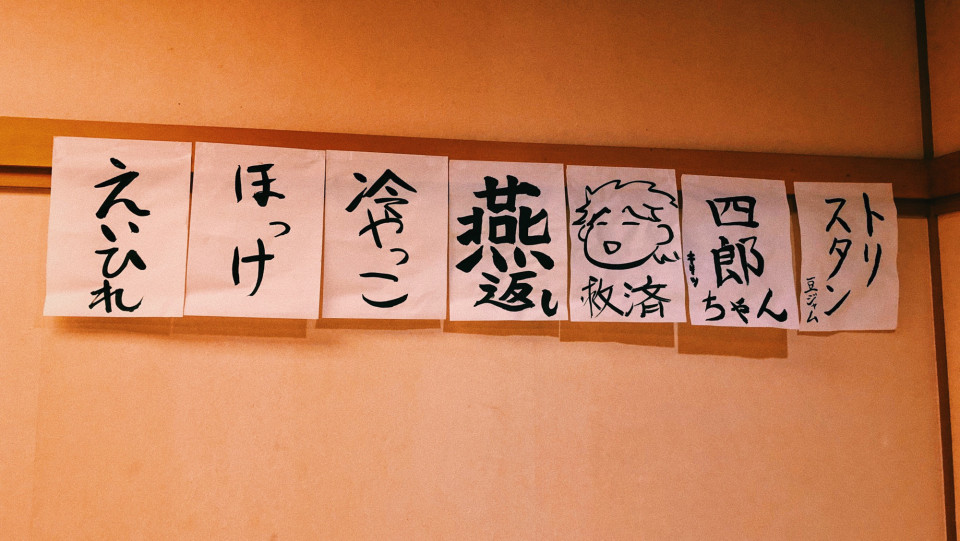 トリ
スタン
豆ジャム
四郎
ちゃん
救済
燕
返し
冷やっこ
ほっけ
えいひれ